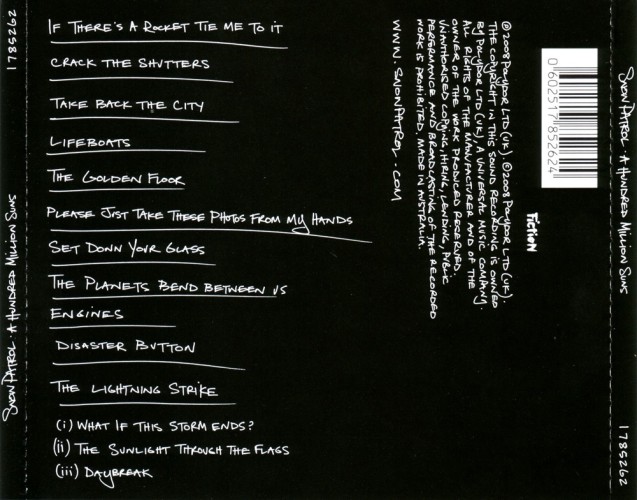 IF THERE'S A ROCKET TIE ME TO IT
CRACK THE SHUTTERS
TAKE BACK THE CITY
LIFEBOATS
THE GOLDEN FLOOR
PLEASE JUST TAKE THESE PHOTOS FROM MY HANDS
SET DOWN YOUR GLASS
THE PLANETS BEND BETWEEN US
ENGINES
DISASTER BUTTON
THE LIGHTNING STRIKE
(i) WHAT IF THIS STORM ENDS?
(ii) THE SUNLIGHT THROUGH THE FLAGS
(iii) DAYBREAK
℗2008 POLYDOR LTD (UK). ©2008 POLYDOR LTD (UK).
THE COPYRIGHT IN THIS SOUND RECORDING IS OWNED
BY POLYDOR LTD (UK), A UNIVERSAL MUSIC COMPANY.
ALL RIGHTS OF THE MANUFACTURER AND OF THE
OWNER OF THE WORK PRODUCED RESERVED.
UNAUTHORISED COPYING, HIRING, LENDING, PUBLIC
PERFORMANCE AND BROADCASTING OF THE RECORDED
WORK IS PROHIBITED. MADE IN AUSTRALIA.
WWW.SNOWPATROL.COM
0 602517 852624
Fiction
SNOW PATROL · A HUNDRED MILLION SUNS
1785262
SNOW PATROL · A HUNDRED MILLION SUNS
1785262